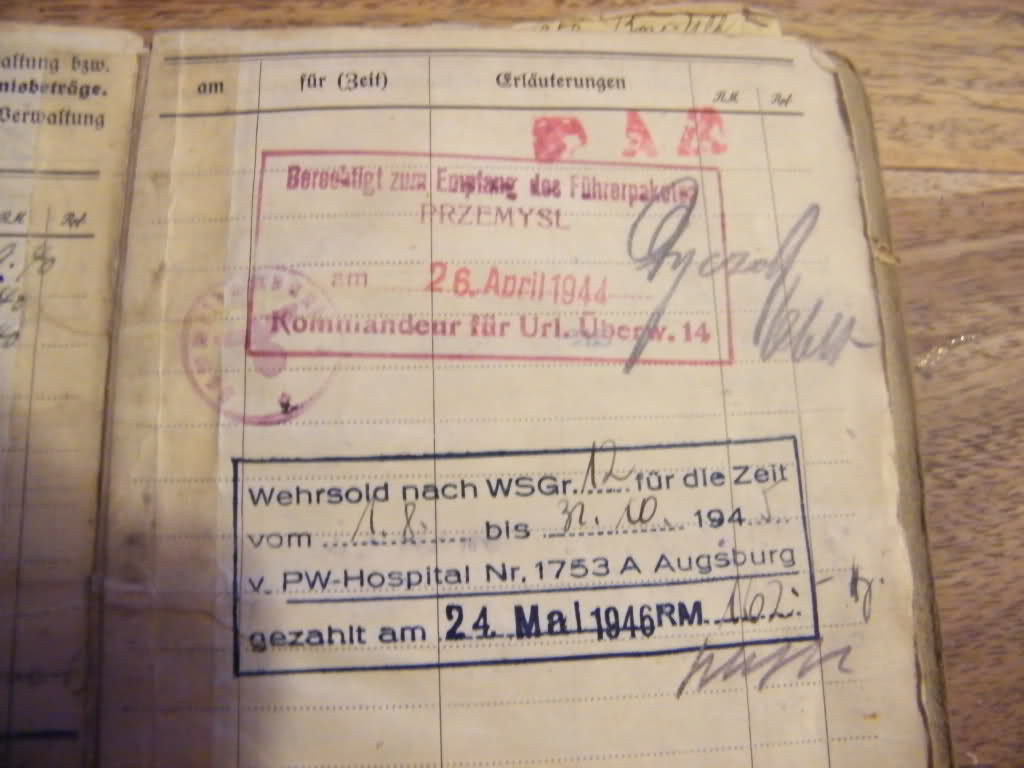 altung bzw.
nisbeträge.
Verwaltung
RM. Rpf.
am für (Zeit) Erläuterungen RM. Rpf.
Berechtigt zum Empfang des Führerpaketes
PRZEMYSL
am 26. April 1944
Kommandeur für Url. Überw. 14
Wehrsold nach WSGr. 12 für die Zeit
vom 1.8. bis 31.10. 1945
v. PW-Hospital Nr. 1753 A Augsburg
gezahlt am 24. Mai 1946 RM. 162.-